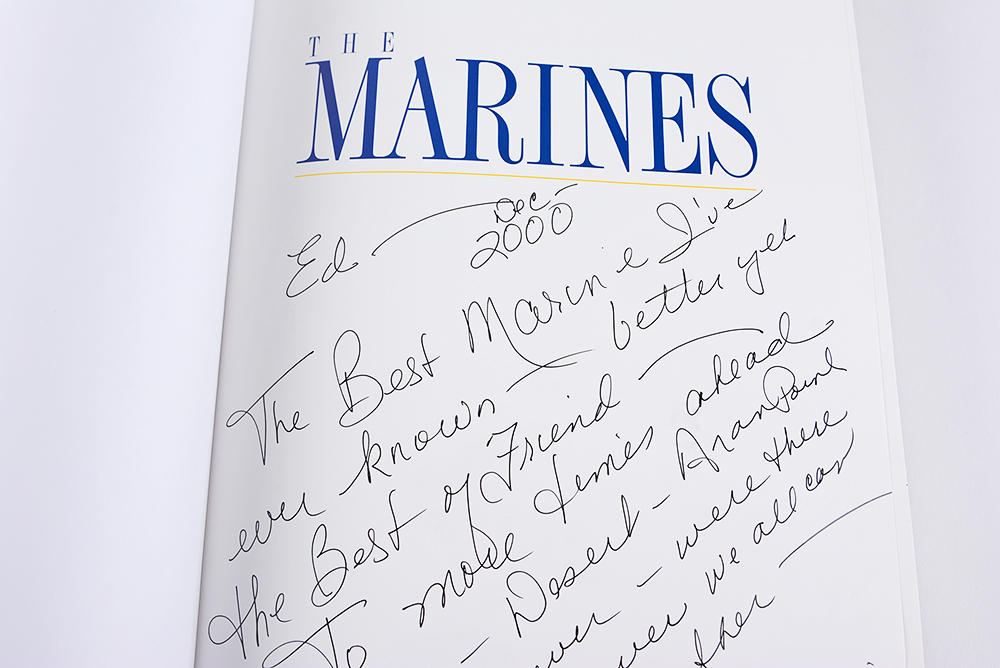 THE
MARINES
Ed — Dec-
2000
The Best Marine I've
ever known — better yet
the Best of Friend —
To more times ahead
— Desert — Aran
ever — were there
ever we all can
ther —